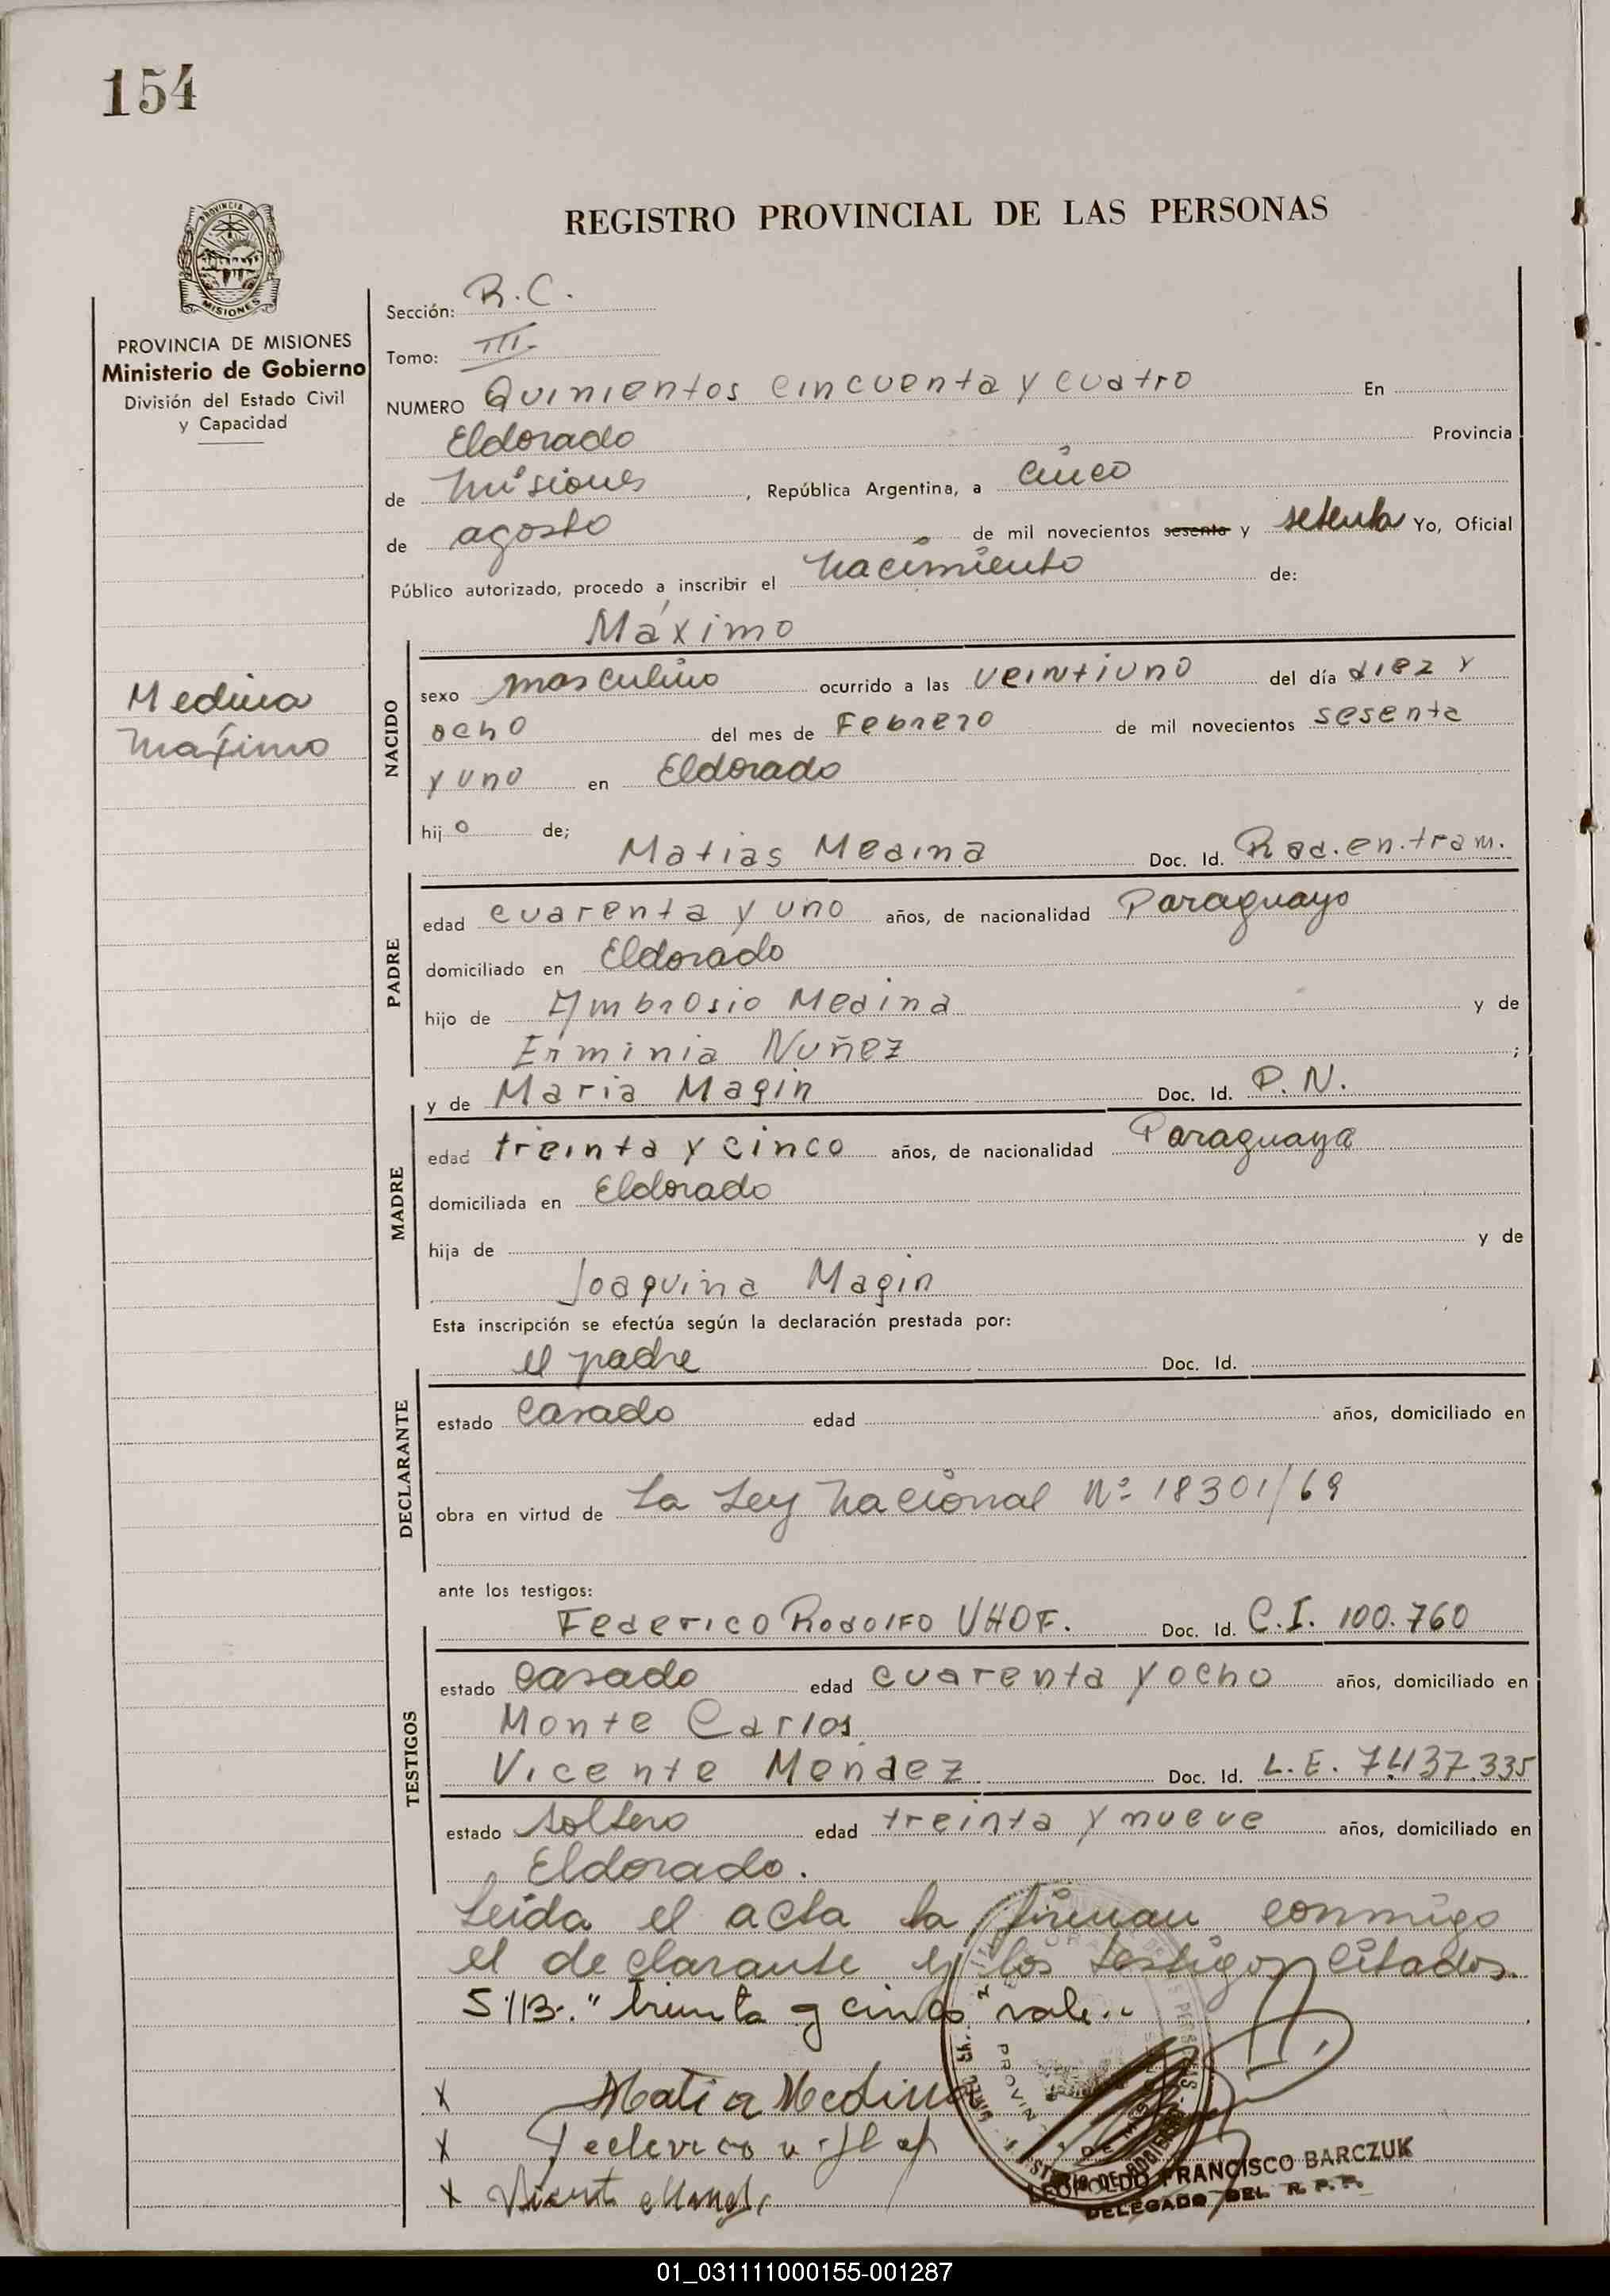 154
REGISTRO PROVINCIAL DE LAS PERSONAS
PROVINCIA DE MISIONES
Ministerio de Gobierno
División del Estado Civil
y Capacidad
Medina
Máximo
Sección: R.C.
Tomo: III
NUMERO Quinientos cincuenta y cuatro En
Eldorado Provincia
de Misiones, República Argentina, a cinco
de agosto de mil novecientos sesenta y setenta Yo, Oficial
Público autorizado, procedo a inscribir el nacimiento de:
Máximo
NACIDO
sexo masculino ocurrido a las veintiuno del día diez y
ocho del mes de Febrero de mil novecientos sesenta
y uno en Eldorado
hijo de;
Matias Medina Doc. Id. Rad.en.tram.
PADRE
edad cuarenta y uno años, de nacionalidad Paraguayo
domiciliado en Eldorado
hijo de Ambrosio Medina y de
Erminia Nuñez ;
y de Maria Magin Doc. Id. P.N.
MADRE
edad treinta y cinco años, de nacionalidad Paraguaya
domiciliada en Eldorado
hija de y de
Joaquina Magin
Esta inscripción se efectúa según la declaración prestada por:
el padre Doc. Id.
DECLARANTE
estado casado edad años, domiciliado en
obra en virtud de La Ley Nacional Nº 18301/69
ante los testigos:
Federico Rodolfo VHOF. Doc. Id. C.I. 100.760
TESTIGOS
estado casado edad cuarenta y ocho años, domiciliado en
Monte Carlos
Vicente Mendez Doc. Id. L.E. 7.437.335
estado soltero edad treinta y nueve años, domiciliado en
Eldorado.
Leida el acta la firman conmigo
el declarante y los testigos citados.
S/B. "treinta y cinco" vale..
X Matia Medina
X Federico
X Vicente
LEOPOLDO FRANCISCO BARCZUK
DELEGADO DEL R.P.P.
01_031111000155-001287